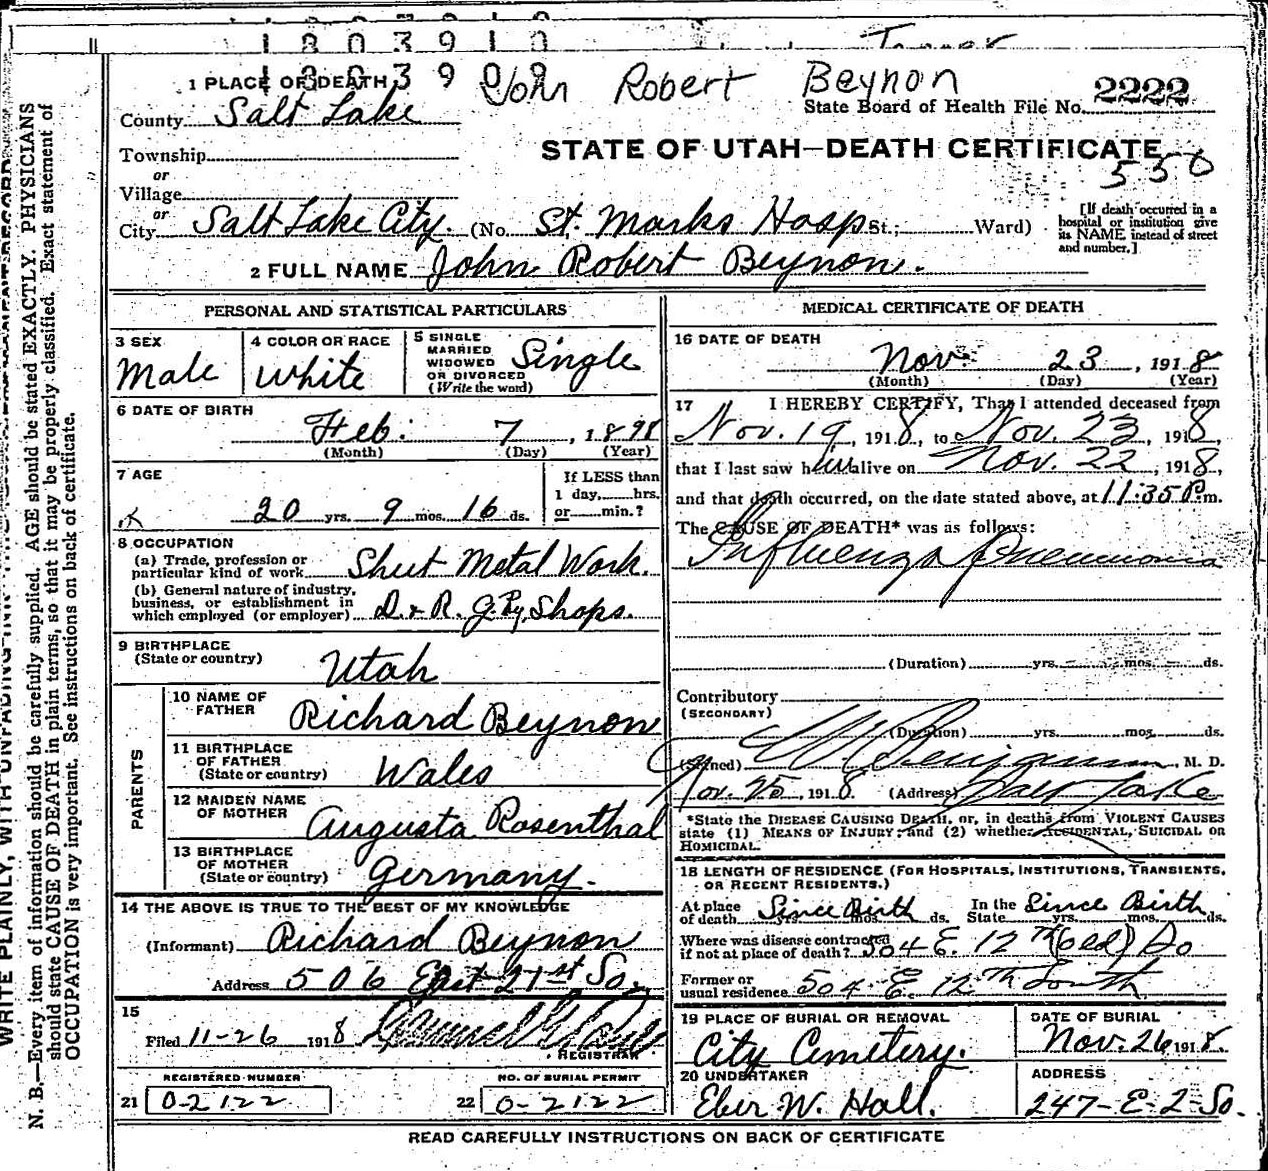 1803910
1 PLACE OF DEATH John Robert Beynon 2222
State Board of Health File No.
County Salt Lake
STATE OF UTAH—DEATH CERTIFICATE
550
Township
or
Village
or
City Salt Lake City. (No. St. Marks Hosp St.; Ward)
[If death occurred in a hospital or institution give its NAME instead of street and number.]
2 FULL NAME John Robert Beynon.
PERSONAL AND STATISTICAL PARTICULARS
3 SEX Male
4 COLOR OR RACE White
5 SINGLE MARRIED WIDOWED OR DIVORCED (Write the word) Single
6 DATE OF BIRTH
Feb. 7, 1898
(Month) (Day) (Year)
7 AGE
20 yrs. 9 mos. 16 ds.
If LESS than 1 day, hrs. or min.?
8 OCCUPATION
(a) Trade, profession or particular kind of work Sheet Metal Work.
(b) General nature of industry, business, or establishment in which employed (or employer) D. & R. G. Ry. Shops.
9 BIRTHPLACE
(State or country) Utah
PARENTS
10 NAME OF FATHER Richard Beynon
11 BIRTHPLACE OF FATHER (State or country) Wales
12 MAIDEN NAME OF MOTHER Augusta Rosenthal
13 BIRTHPLACE OF MOTHER (State or country) Germany.
14 THE ABOVE IS TRUE TO THE BEST OF MY KNOWLEDGE
(Informant) Richard Beynon
Address 506 East 21st So.
15
Filed 11-26 1918
REGISTRAR
REGISTERED NUMBER
21 0-2122
NO. OF BURIAL PERMIT
22 0-2122
MEDICAL CERTIFICATE OF DEATH
16 DATE OF DEATH
Nov. 23, 1918
(Month) (Day) (Year)
17 I HEREBY CERTIFY, That I attended deceased from
Nov. 19, 1918, to Nov. 23, 1918,
that I last saw him alive on Nov. 22, 1918,
and that death occurred, on the date stated above, at 11:35 P.m.
The CAUSE OF DEATH* was as follows:
Influenza Pneumonia
(Duration) yrs. mos. ds.
Contributory
(SECONDARY)
(Duration) yrs. mos. ds.
(Signed) M. D.
Nov. 25, 1918 (Address) Salt Lake
*State the DISEASE CAUSING DEATH, or, in deaths from VIOLENT CAUSES
state (1) MEANS OF INJURY; and (2) whether ACCIDENTAL, SUICIDAL OR
HOMICIDAL.
18 LENGTH OF RESIDENCE (FOR HOSPITALS, INSTITUTIONS, TRANSIENTS,
OR RECENT RESIDENTS.)
At place of death Since Birth yrs. mos. ds. In the State Since Birth yrs. mos. ds.
Where was disease contracted if not at place of death? 504 E. 12th (old) So
Former or usual residence 504 E. 12th South
19 PLACE OF BURIAL OR REMOVAL
City Cemetery.
DATE OF BURIAL
Nov. 26 1918.
20 UNDERTAKER
Eber W. Hall.
ADDRESS
247-E-2-So.
READ CAREFULLY INSTRUCTIONS ON BACK OF CERTIFICATE
N. B.—Every item of information should be carefully supplied. AGE should be stated EXACTLY. PHYSICIANS
should state CAUSE OF DEATH in plain terms, so that it may be properly classified. Exact statement of
OCCUPATION is very important. See instructions on back of certificate.